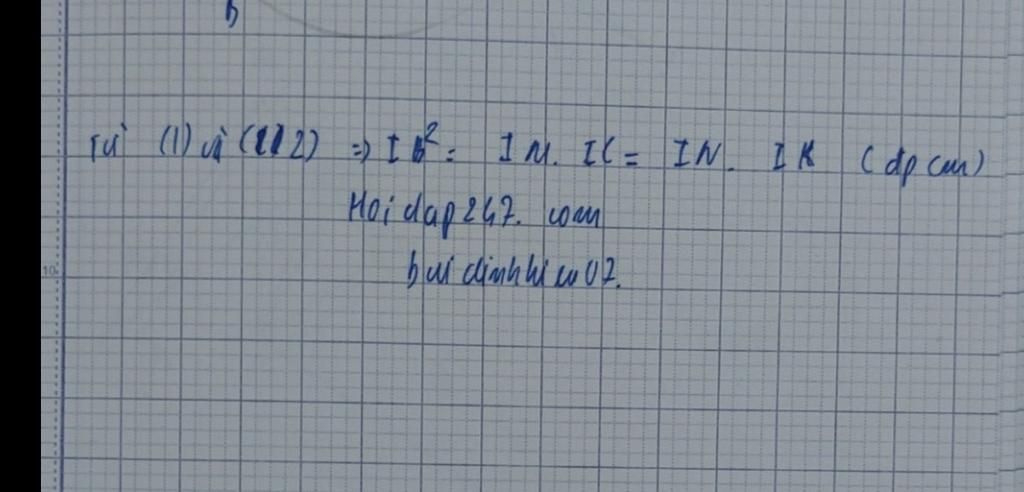 b
Từ (1) và (2) => Ib² = IM. IC = IN. IK (dpcm)
Hoidap247. com
buidinhhieu02.
10